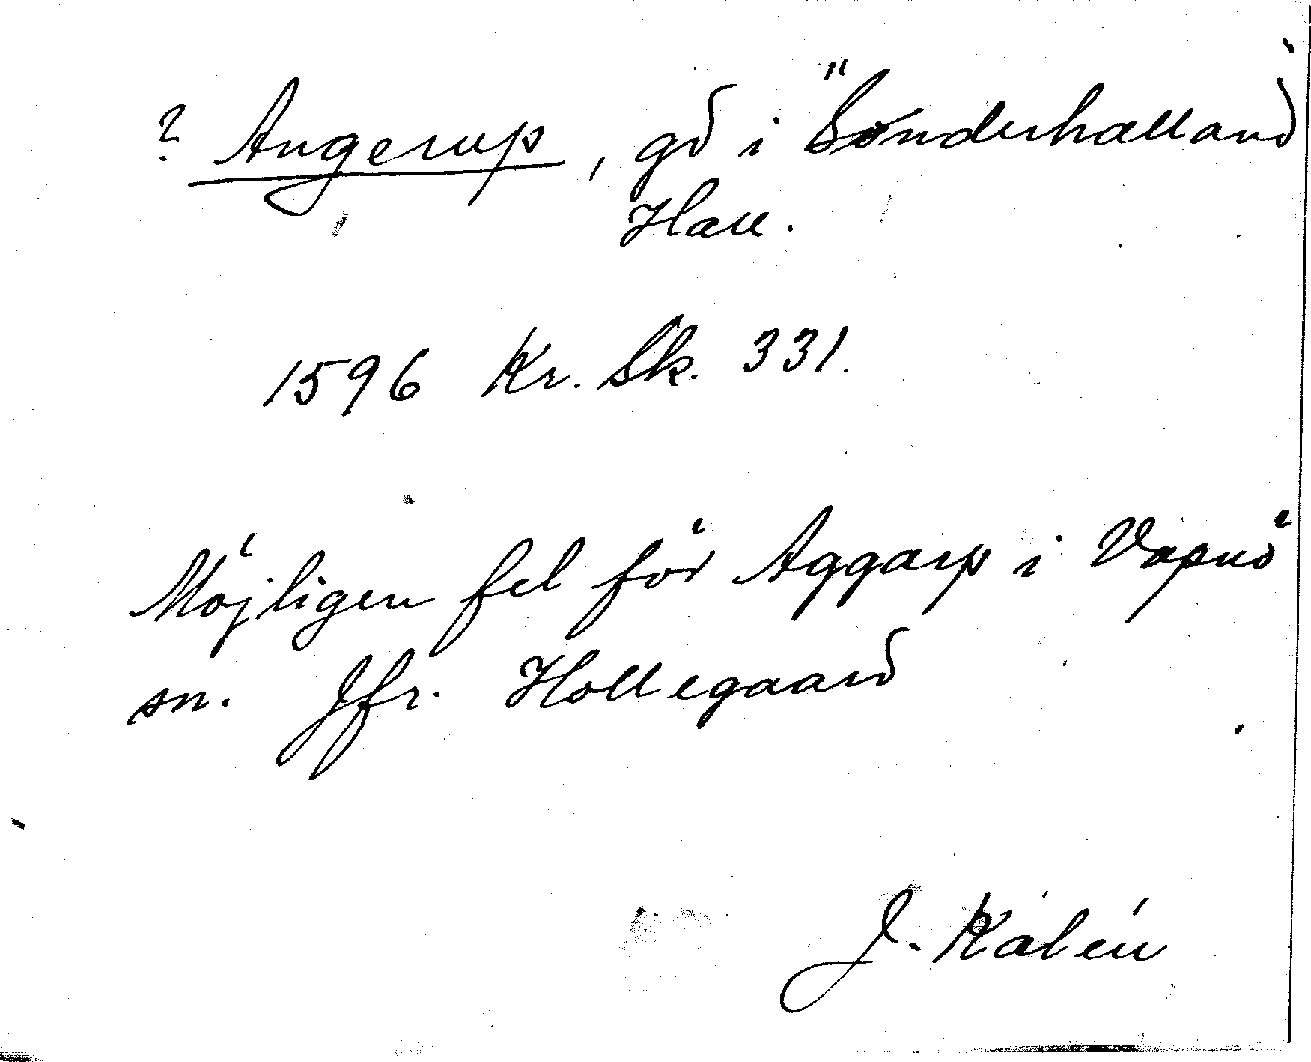 ? Angerup, gd i "Sønderhalland
Hall.
1596 Kr. Sk. 331.
Möjligen fel för Aggarp i Vapnö
sn. Jfr. Hollegaard
J. Kalén